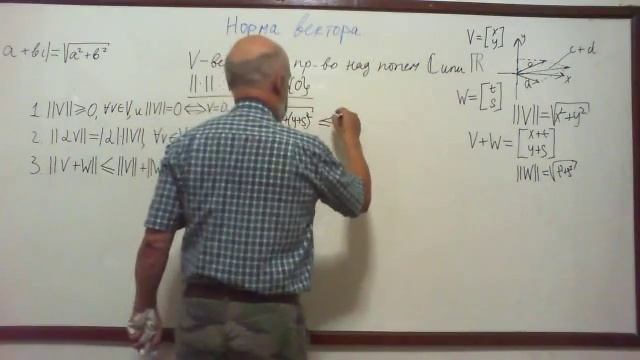 Норма вектора
a + bi| = √a²+b²
V - пр-во над полем ℂ или ℝ
||·|| {0}
1. ||V|| ⩾ 0, ∀V∈V, и ||V||=0 ⇔ V=0
2. ||αV|| = |α| ||V||, ∀V∈
3. ||V+W|| ⩽ ||V|| + ||W
+(y+s)² ⩽
V = [x y]
y
c + d
x
W = [t s]
||V|| = √x²+y²
V+W = [x+t y+s]
||W|| = √t²+s²